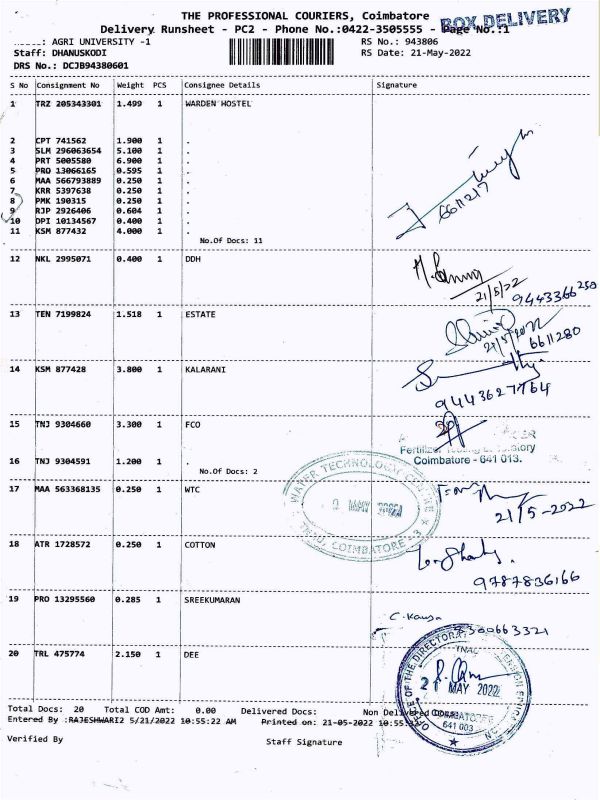 THE PROFESSIONAL COURIERS, Coimbatore
BOX DELIVERY
Delivery Runsheet - PC2 - Phone No.:0422-3505555 - Page No.:1
: AGRI UNIVERSITY -1 RS No.: 943806
Staff: DHANUSKODI RS Date: 21-May-2022
DRS No.: DCJB94380601
S No Consignment No Weight PCS Consignee Details Signature
1 TRZ 205343301 1.499 1 WARDEN HOSTEL
2 CPT 741562 1.900 1 .
3 SLM 296063654 5.100 1 .
4 PRT 5005580 6.900 1 .
5 PRO 13066165 0.595 1 .
6 MAA 566793889 0.250 1 .
7 KRR 5397638 0.250 1 .
8 PMK 190315 0.250 1 .
9 RJP 2926406 0.604 1 .
10 DPI 10134567 0.400 1 .
11 KSM 877432 4.000 1 .
6611217
No.Of Docs: 11
12 NKL 2995071 0.400 1 DDH
21/5/22
9443366250
13 TEN 7199824 1.518 1 ESTATE
6611280
14 KSM 877428 3.800 1 KALARANI
9443627764
15 TNJ 9304660 3.300 1 FCO
Coimbatore - 641 013.
16 TNJ 9304591 1.200 1 .
No.Of Docs: 2
WATER TECHNOLOGY CENTRE
MAY
COIMBATORE - 3
17 MAA 563368135 0.250 1 WTC
21/5-2022
18 ATR 1728572 0.250 1 COTTON
9787836166
19 PRO 13295560 0.285 1 SREEKUMARAN
9360663321
20 TRL 475774 2.150 1 DEE
OFFICE OF THE DIRECTOR
TNAU
21 MAY 2022
COIMBATORE
641 003
Total Docs: 20 Total COD Amt: 0.00 Delivered Docs: Non Delivered Docs:
Entered By :RAJESHWARI2 5/21/2022 10:55:22 AM Printed on: 21-05-2022 10:55:
Verified By Staff Signature